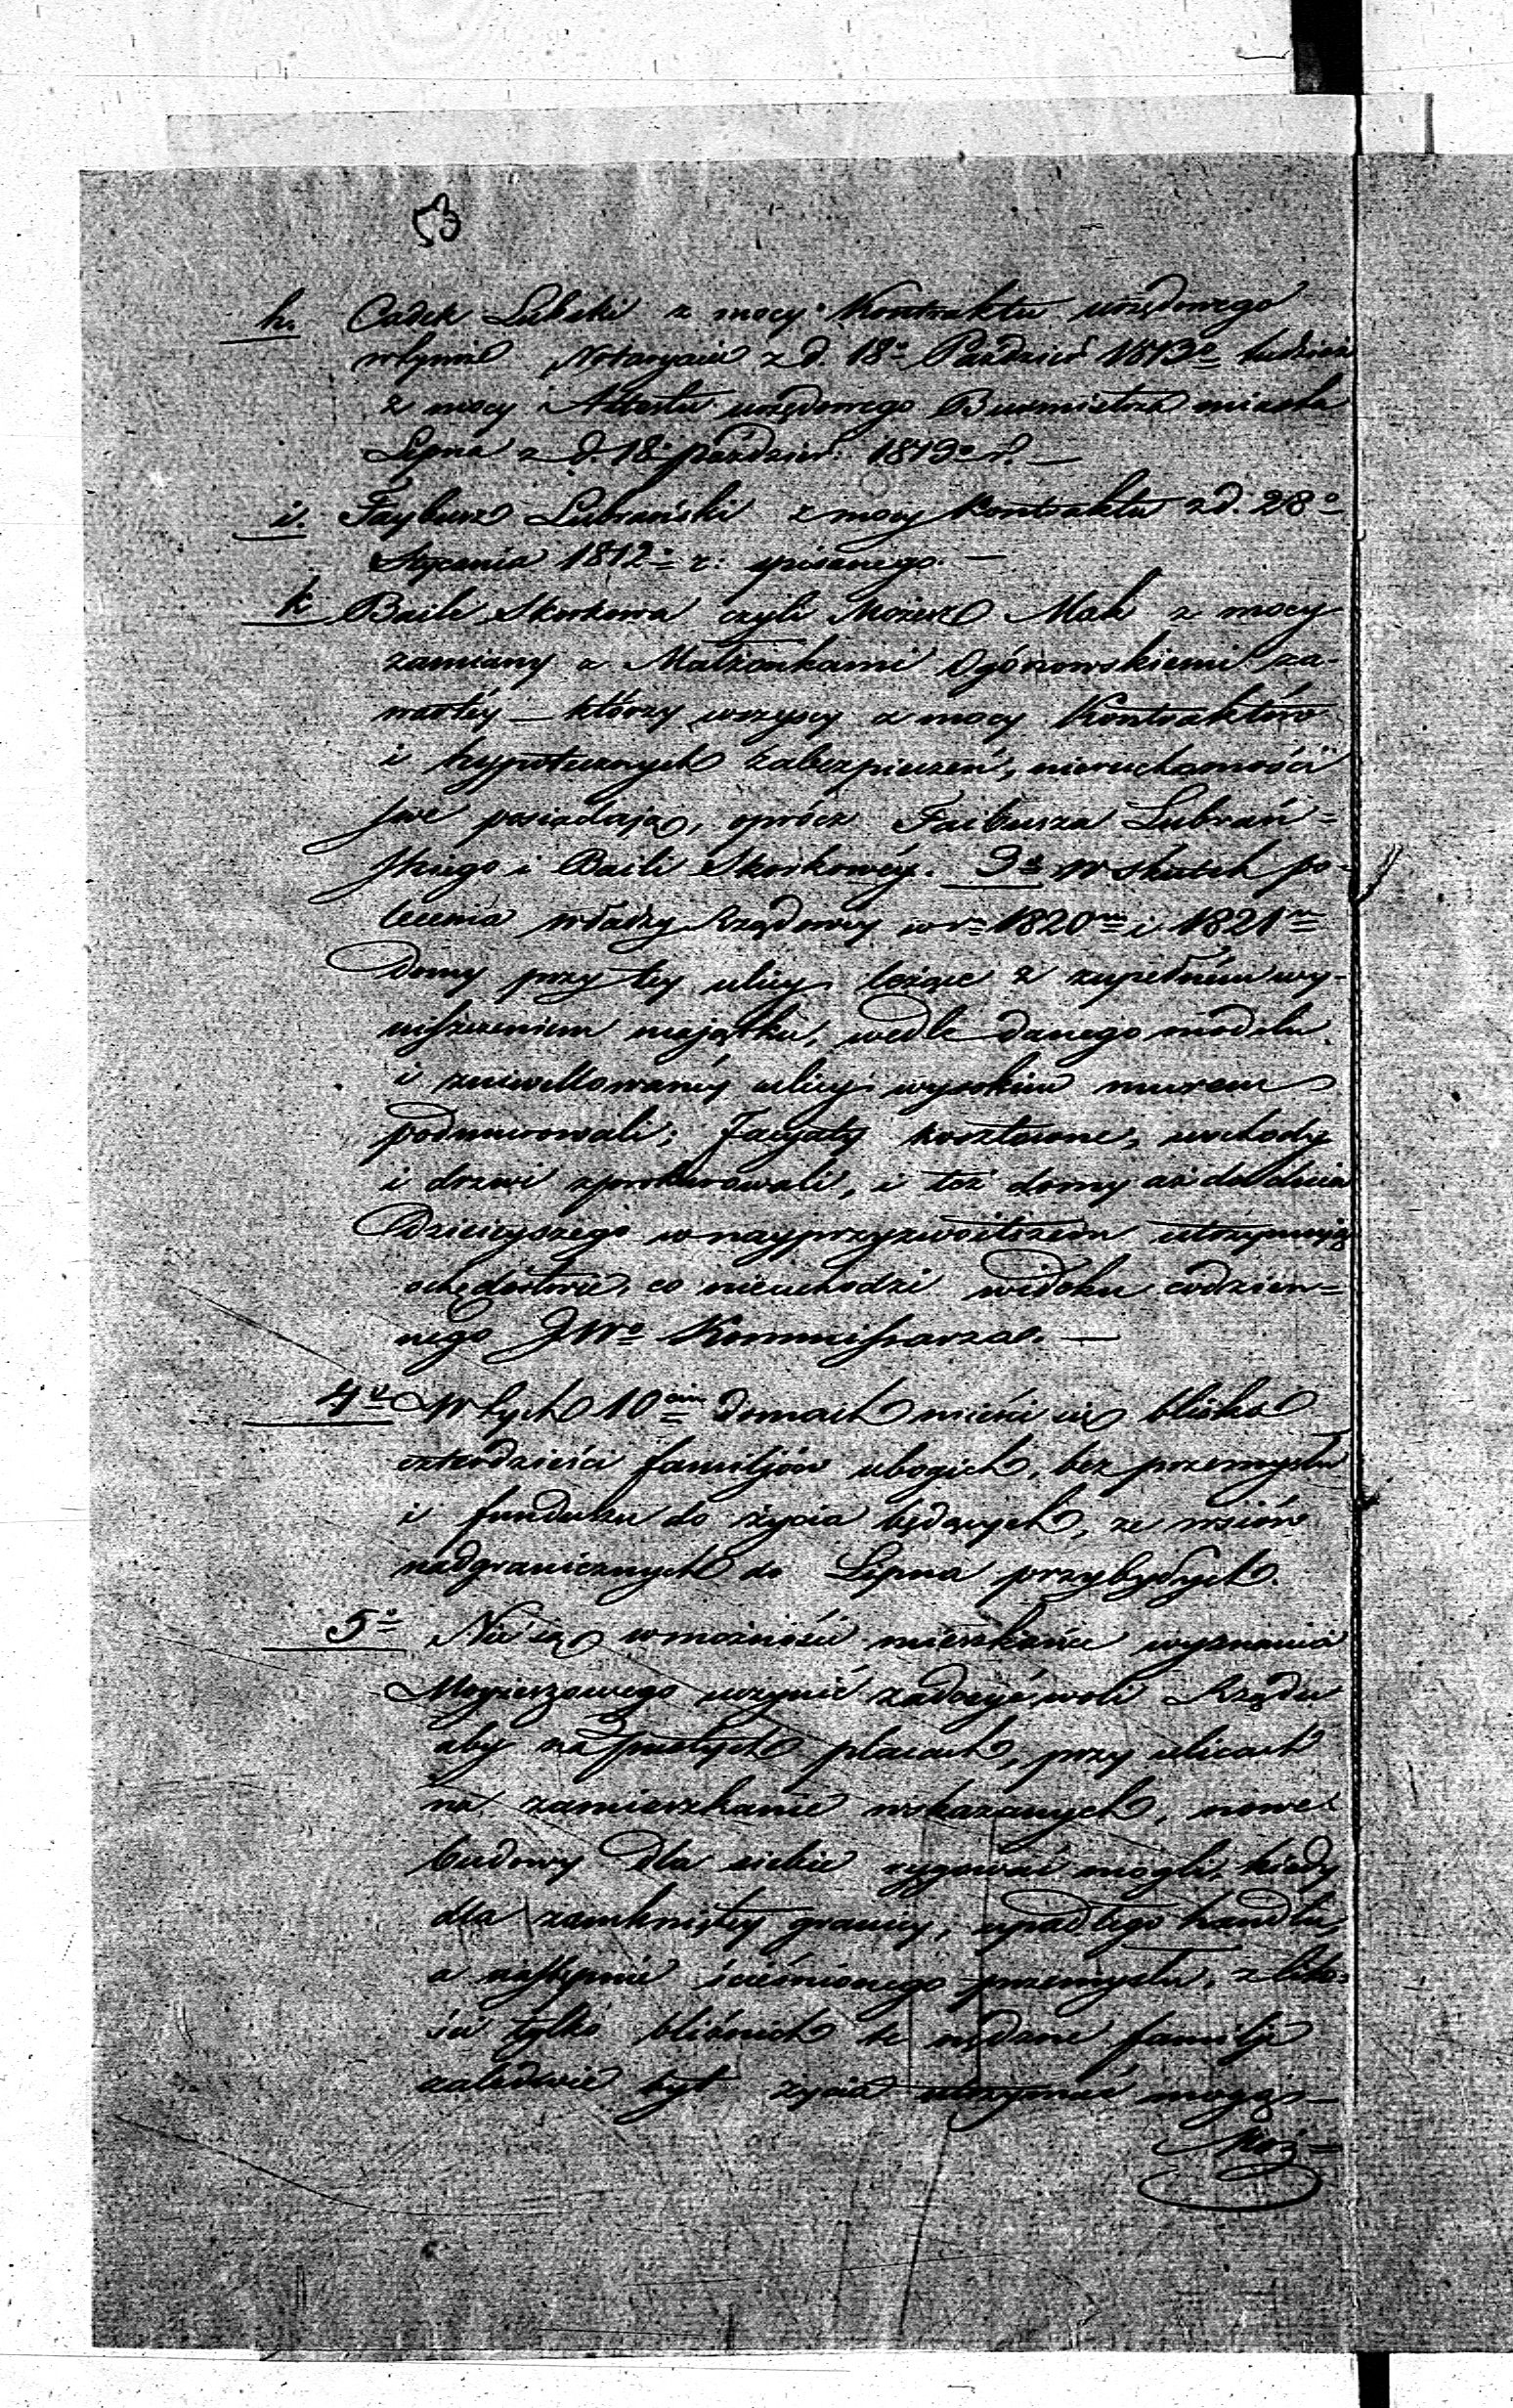 h. Cadek Lubski z mocy Kontraktu urzędowego
w tymże Notaryacie z d. 18º Paździer 1813º tudzież
z mocy Attestu urzędowego Burmistrza miasta
Lipna z d. 18º paździer. 1819º r.
i. Faybusz Lubrański z mocy Kontraktu z d. 28º
Stycznia 1812º r: spisanego. —
k Baile Skorkowa czyli Mozesz Mak z mocy
zamiany z Małżonkami Ogórzowskiemi za-
wartéy — którzy wszyscy z mocy Kontraktów
i hypotecznych zabezpieczeń, nieruchomości
swe posiadają, oprócz Faibusza Lubrań=
skiego i Baili Skorkowéy. 3º W skutek po-
lecenia władzy Rządowéy w r 1820m i 1821m
Domy przy téy ulicy leżące z zupełném wy-
niszczeniem majątku, wedle danego modelu
i zniwellowanéy ulicy wysokim murem
podmurowali; Facyaty kosztowne, wschody
i drzwi sprokurowali, i też domy aż do dnia
Dzisieyszego w nayprzyzwoitszém utrzymują
ochędóstwie, co nieuchodzi widoku codzien=
nego JWº Kommissarza. —
4º W tych 10ciu Domach mieści się blisko
czterdzieści familjów ubogich, bez przemysłu
i funduszu do życia będących, ze wsiów
nadgranicznych do Lipna przybyłych.
5º Nie są w możności mieszkańce wyznania
Moyżeszowego uczynić zadosyć woli Rządu
aby na pustych placach, przy ulicach
na zamieszkanie wskazanych, nowe
budowy Dla siebie rygować mogli, kiedy
dla zamkniętéy granicy, upadłego handlu,
a następnie ścieśnionego przemysłu, z lito-
ści tylko bliźnich te nędzne familje
zaledwie byt życia utrzymać mogą —
Moż=